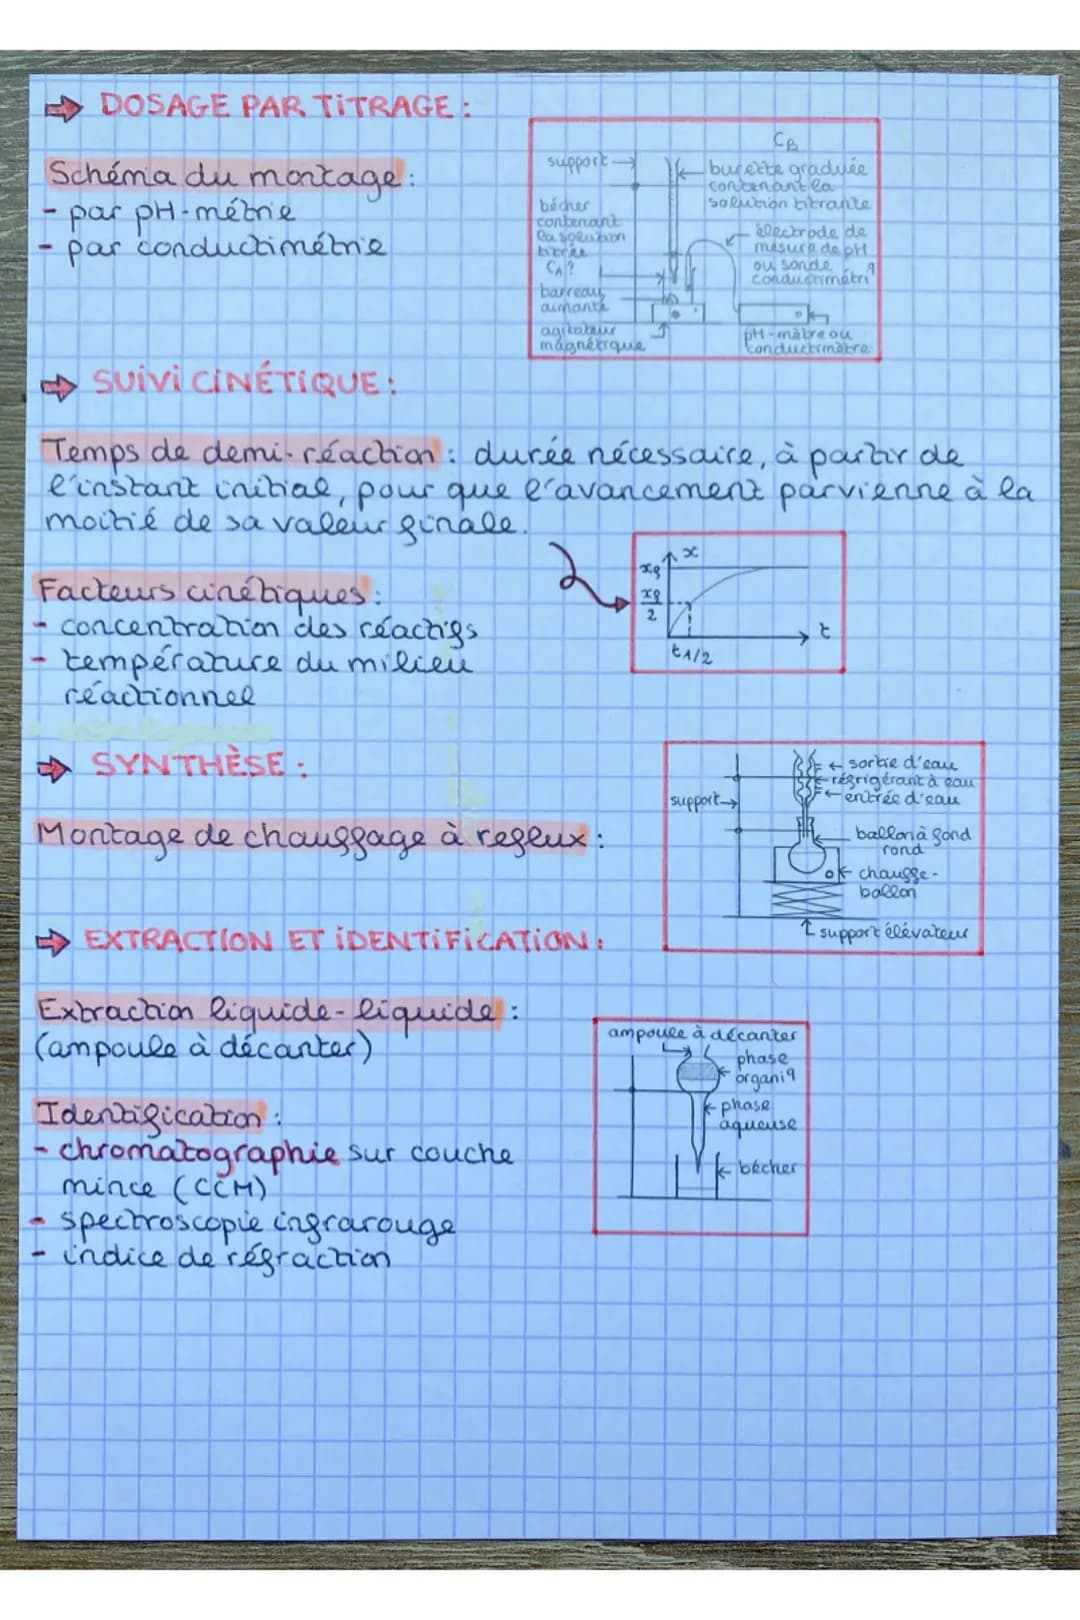 DOSAGE PAR TITRAGE :
Schéma du montage :
- par pH-métrie
- par conductimétrie
CB
support
burette graduée
contenant la
solution titrante
bécher
contenant
la solution
titrée
CA?
électrode de
mesure de pH
ou sonde
conductimétriq
barreau
aimanté
agitateur
magnétique
pH-mètre ou
conductimètre
SUIVI CINÉTIQUE :
Temps de demi-réaction : durée nécessaire, à partir de
l'instant initial, pour que l'avancement parvienne à la
moitié de sa valeur finale.
x
xf
xf/2
t
t1/2
Facteurs cinétiques :
- concentration des réactifs
- température du milieu
réactionnel
SYNTHÈSE :
Montage de chauffage à reflux :
sortie d'eau
réfrigérant à eau
entrée d'eau
support
ballon à fond
rond
chauffe-
ballon
support élévateur
EXTRACTION ET IDENTIFICATION :
Extraction liquide-liquide :
(ampoule à décanter)
ampoule à décanter
phase
organiq
phase
aqueuse
bécher
Identification :
- chromatographie sur couche
mince (CCM)
- spectroscopie infrarouge
- indice de réfraction